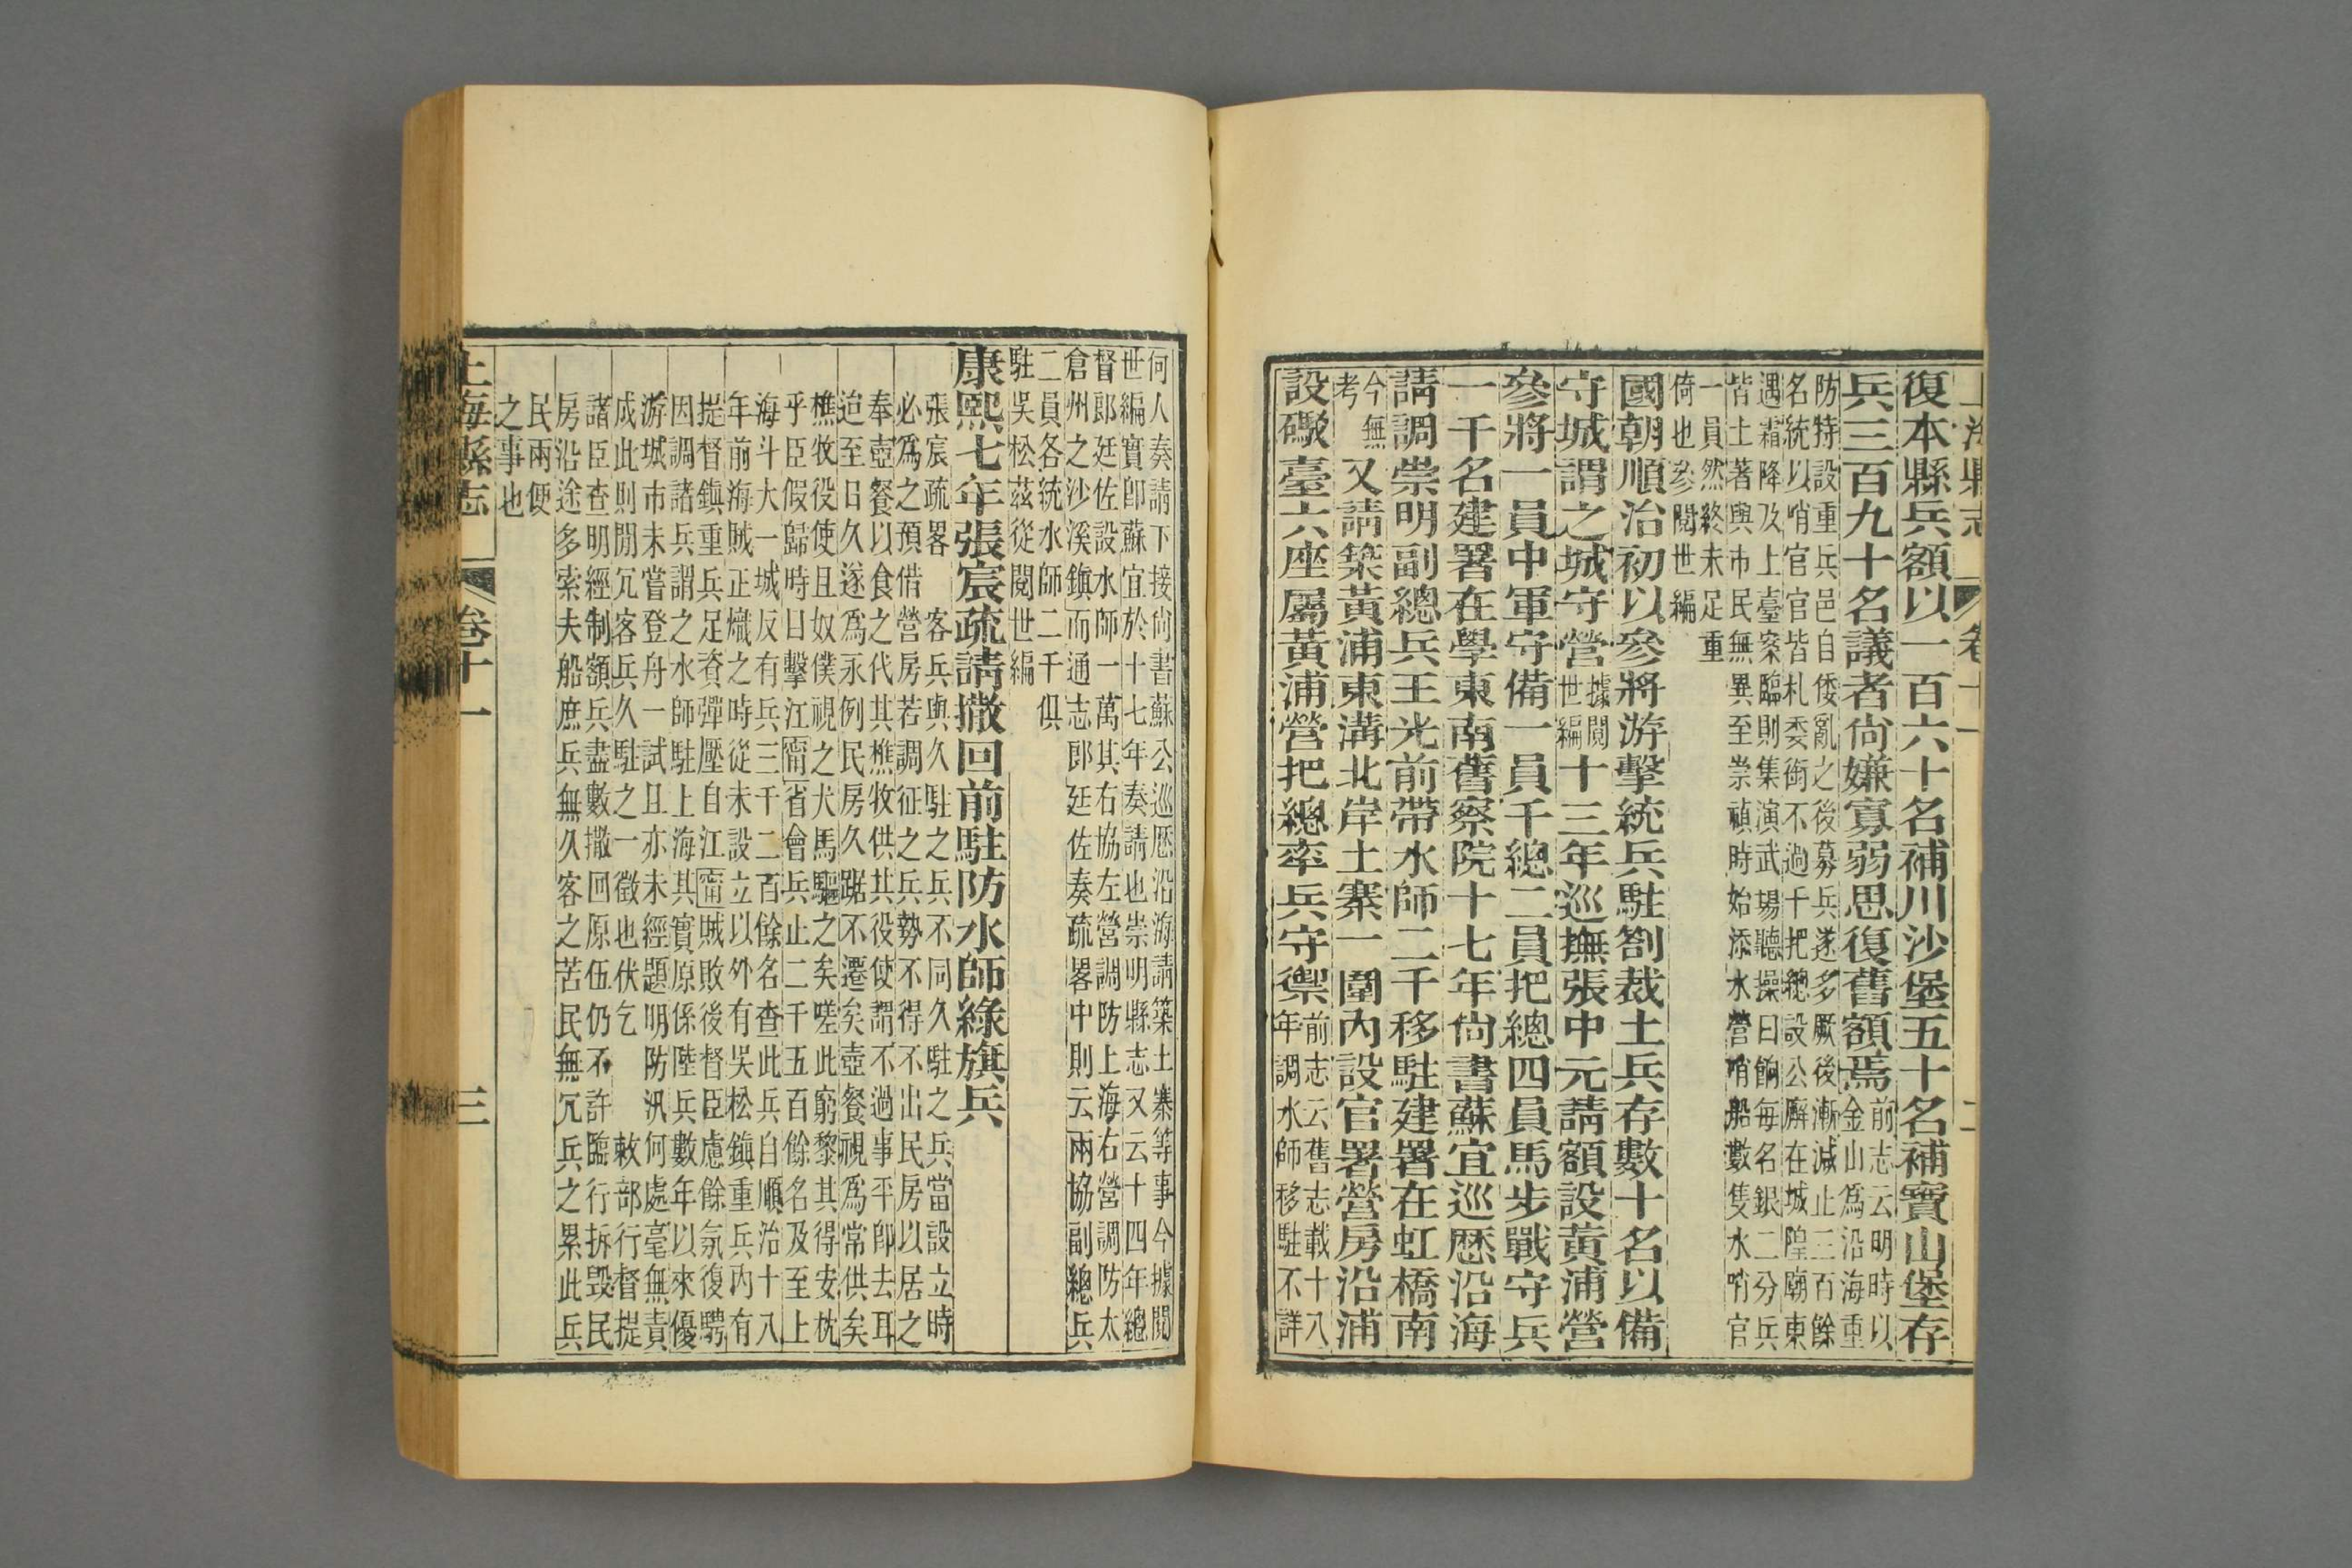 上海縣志 卷十一 二
復本縣兵額以一百六十名補川沙堡五十名補寶山堡存
兵三百九十名議者尙嫌寡弱思復舊額焉前志云明時以
金山爲沿海重
防特設重兵邑自倭亂之後募兵遂多厥後漸減止三百餘
名統以哨官官皆札委銜不過千把總設公廨在城隍廟東
遇霜降及上臺案臨則集演武場聽操日餉每名銀二分兵
皆土著與市民無異至崇禎時始添水營哨船數隻水哨官
一員然終未足重
倚也參閱世編
國朝順治初以參將游擊統兵駐劄裁土兵存數十名以備
守城謂之城守營據閱世編十三年巡撫張中元請額設黃浦營
參將一員中軍守備一員千總二員把總四員馬步戰守兵
一千名建署在學東南舊察院十七年尙書蘇宜巡歷沿海
請調崇明副總兵王光前帶水師二千移駐建署在虹橋南
今無考又請築黃浦東溝北岸土寨一圍內設官署營房沿浦
設礮臺六座屬黃浦營把總率兵守禦前志云舊志載十八
年調水師移駐不詳
何人奏請下接尙書蘇公巡歷沿海請築土寨等事今據閱
世編實卽蘇宜於十七年奏請也崇明縣志又云十四年總
督郎廷佐設水師一萬其右協左營調防上海右營調防太
倉州之沙溪鎮而通志郎廷佐奏疏畧中則云兩協副總兵
二員各統水師二千俱
駐吳松茲從閱世編
康熙七年張宸疏請撤回前駐防水師綠旗兵
張宸疏畧 客兵與久駐之兵不同久駐之兵當設立時
必爲之預借營房若調征之兵勢不得不出民房以居之
奉壺餐以食之代其樵牧供其役使謂不過事平卽去耳
迨至日久遂爲永例民房久踞不遷矣壺餐視爲常供矣
樵牧役使且奴僕視之犬馬驅之矣嗟此窮黎其得安枕
乎臣假歸時日擊江甯省會兵止二千五百餘名及至上
海斗大一城反有兵三千二百餘名查此兵自順治十八
年前海賊正熾之時從未設立以外有吳松鎮重兵內有
提督鎮重兵足資彈壓自江甯賊敗後督臣慮餘氛復騁
因調諸兵謂之水師駐上海其實原係陸兵數年以來優
游城市未嘗登舟一試且亦未經題明防汛何處毫無責
成此則閒冗客兵久駐之一徵也伏乞 敕部行督提
諸臣查明經制額兵盡數撤回原伍仍不許臨行拆毀民
房沿途多索夫船庶兵無久客之苦民無冗兵之累此兵
民兩便
之事也
上海縣志 卷十一 三